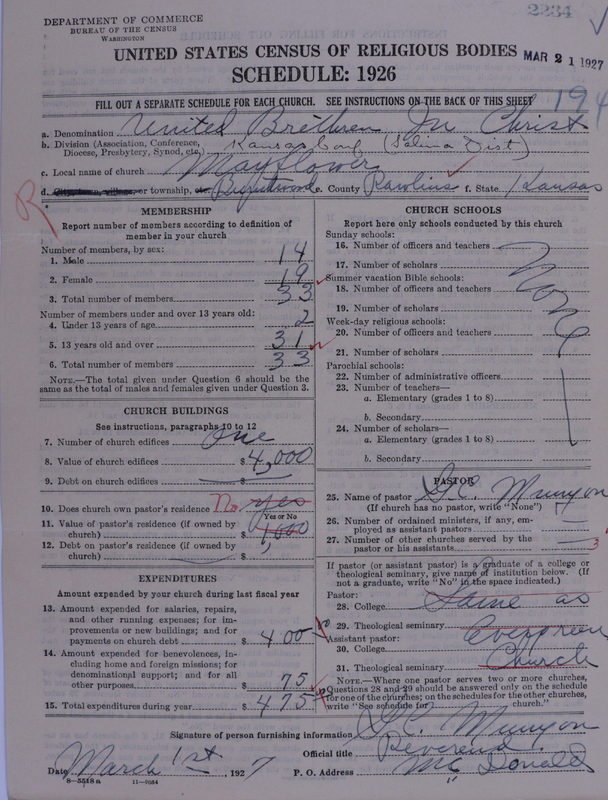 2234
DEPARTMENT OF COMMERCE
BUREAU OF THE CENSUS
WASHINGTON
UNITED STATES CENSUS OF RELIGIOUS BODIES
SCHEDULE: 1926
MAR 21 1927
FILL OUT A SEPARATE SCHEDULE FOR EACH CHURCH. SEE INSTRUCTIONS ON THE BACK OF THIS SHEET
194
a. Denomination United Brethren In Christ
b. Division (Association, Conference, Diocese, Presbytery, Synod, etc.) Kansas Conf (Salina Dist)
c. Local name of church Mayflower
d. or township, etc. e. County Rawlins f. State Kansas
R
MEMBERSHIP
Report number of members according to definition of
member in your church
Number of members, by sex:
1. Male 14
2. Female 19
3. Total number of members 33
Number of members under and over 13 years old:
4. Under 13 years of age 2
5. 13 years old and over 31
6. Total number of members 33
NOTE.—The total given under Question 6 should be
the same as the total of males and females given under Question 3.
CHURCH BUILDINGS
See instructions, paragraphs 10 to 12
7. Number of church edifices One
8. Value of church edifices $4,000
9. Debt on church edifices $
10. Does church own pastor's residence No Yes
Yes or No
11. Value of pastor's residence (if owned by
church) $1000
12. Debt on pastor's residence (if owned by
church) $
EXPENDITURES
Amount expended by your church during last fiscal year
13. Amount expended for salaries, repairs,
and other running expenses; for im-
provements or new buildings; and for
payments on church debt $400
14. Amount expended for benevolences, in-
cluding home and foreign missions; for
denominational support; and for all
other purposes $75
15. Total expenditures during year $475
CHURCH SCHOOLS
Report here only schools conducted by this church
Sunday schools:
16. Number of officers and teachers
17. Number of scholars
Summer vacation Bible schools:
18. Number of officers and teachers
19. Number of scholars
Week-day religious schools:
20. Number of officers and teachers
21. Number of scholars
Parochial schools:
22. Number of administrative officers
23. Number of teachers—
a. Elementary (grades 1 to 8)
b. Secondary
24. Number of scholars—
a. Elementary (grades 1 to 8)
b. Secondary
None
PASTOR
25. Name of pastor Munyon
(If church has no pastor, write "None")
26. Number of ordained ministers, if any, em-
ployed as assistant pastors
27. Number of other churches served by the
pastor or his assistants 3
If pastor (or assistant pastor) is a graduate of a college or
theological seminary, give name of institution below. (If
not a graduate, write "No" in the space indicated.)
Pastor:
28. College Same as
29. Theological seminary Evergreen
Assistant pastor:
30. College
31. Theological seminary Church
NOTE.—Where one pastor serves two or more churches,
Questions 28 and 29 should be answered only on the schedule
for one of the churches; on the schedules for the other churches,
write "See schedule for church."
Signature of person furnishing information Munyon
Official title Reverend
Date March 1st, 1927 P. O. Address McDonald
8—5518a 11—9034